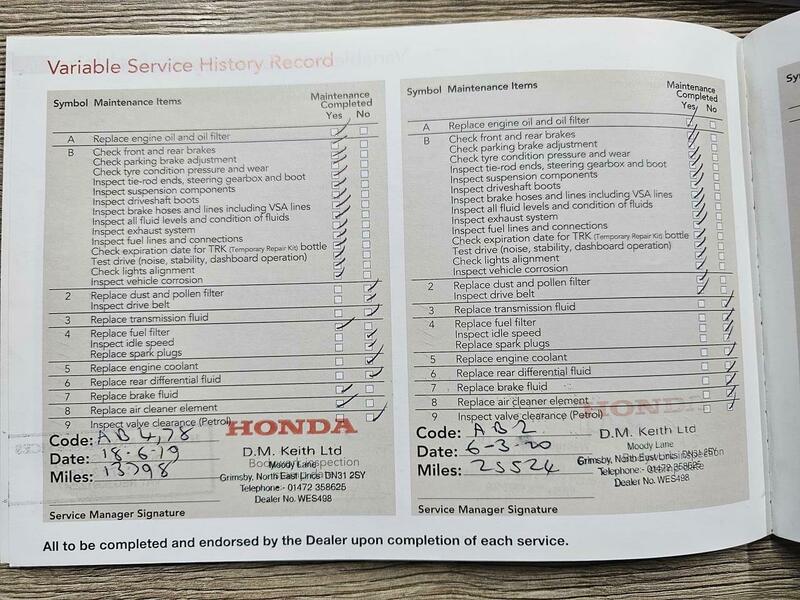 Variable Service History Record
Symbol Maintenance Items
Maintenance
Completed
Yes No
A Replace engine oil and oil filter
B Check front and rear brakes
Check parking brake adjustment
Check tyre condition pressure and wear
Inspect tie-rod ends, steering gearbox and boot
Inspect suspension components
Inspect driveshaft boots
Inspect brake hoses and lines including VSA lines
Inspect all fluid levels and condition of fluids
Inspect exhaust system
Inspect fuel lines and connections
Check expiration date for TRK (Temporary Repair Kit) bottle
Test drive (noise, stability, dashboard operation)
Check lights alignment
Inspect vehicle corrosion
2 Replace dust and pollen filter
Inspect drive belt
3 Replace transmission fluid
4 Replace fuel filter
Inspect idle speed
Replace spark plugs
5 Replace engine coolant
6 Replace rear differential fluid
7 Replace brake fluid
8 Replace air cleaner element
9 Inspect valve clearance (Petrol)
Code: AB 4,7,8
Date: 18-6-19
Miles: 13798
HONDA
D.M. Keith Ltd
Moody Lane
Grimsby, North East Lincs DN31 2SY
Telephone:- 01472 358625
Dealer No. WES498
Service Manager Signature
Symbol Maintenance Items
Maintenance
Completed
Yes No
A Replace engine oil and oil filter
B Check front and rear brakes
Check parking brake adjustment
Check tyre condition pressure and wear
Inspect tie-rod ends, steering gearbox and boot
Inspect suspension components
Inspect driveshaft boots
Inspect brake hoses and lines including VSA lines
Inspect all fluid levels and condition of fluids
Inspect exhaust system
Inspect fuel lines and connections
Check expiration date for TRK (Temporary Repair Kit) bottle
Test drive (noise, stability, dashboard operation)
Check lights alignment
Inspect vehicle corrosion
2 Replace dust and pollen filter
Inspect drive belt
3 Replace transmission fluid
4 Replace fuel filter
Inspect idle speed
Replace spark plugs
5 Replace engine coolant
6 Replace rear differential fluid
7 Replace brake fluid
8 Replace air cleaner element
9 Inspect valve clearance (Petrol)
Code: AB2
Date: 6-3-20
Miles: 25524
HONDA
D.M. Keith Ltd
Moody Lane
Grimsby, North East Lincs DN31 2SY
Telephone:- 01472 358625
Dealer No. WES498
Service Manager Signature
All to be completed and endorsed by the Dealer upon completion of each service.